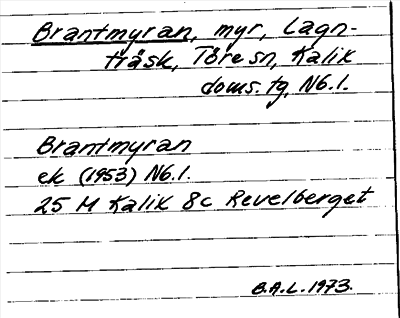 Brantmyran, myr, Lagn-
träsk, Töre sn, Kalix
doms. tg, Nb.l.
Brantmyran
ek (1953) Nb.l.
25 M Kalix 8c Revelberget
B.A.L. 1973.